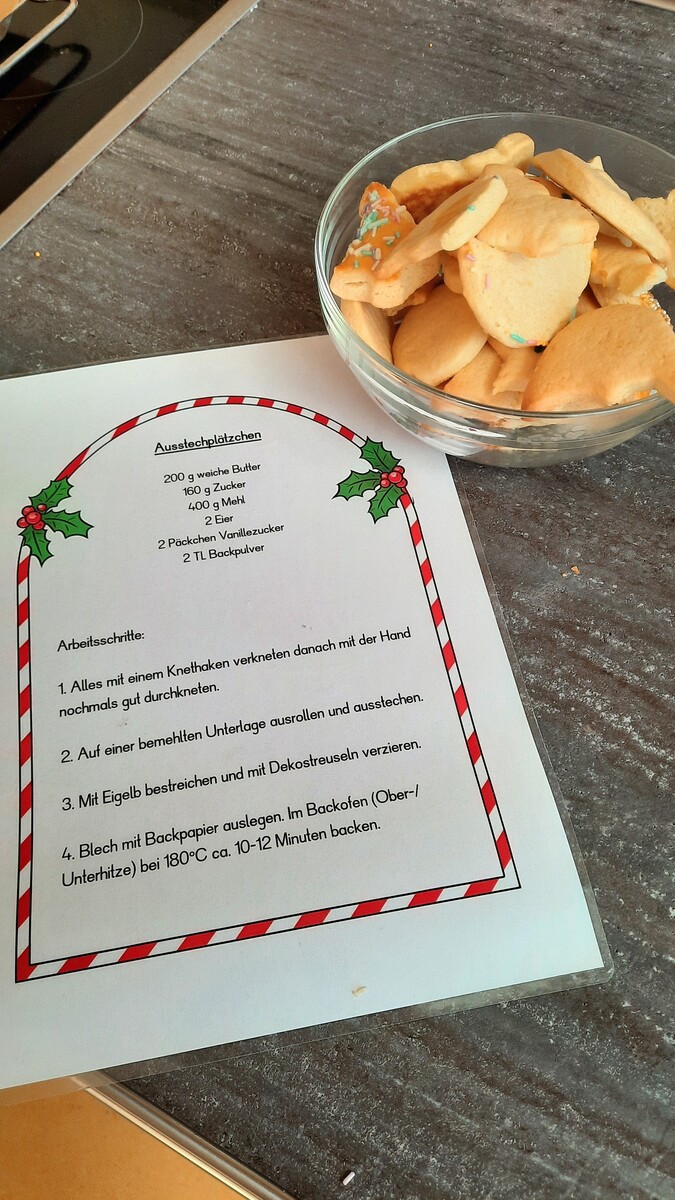 Ausstechplätzchen
200 g weiche Butter
160 g Zucker
400 g Mehl
2 Eier
2 Päckchen Vanillezucker
2 TL Backpulver
Arbeitsschritte:
1. Alles mit einem Knethaken verkneten danach mit der Hand
nochmals gut durchkneten.
2. Auf einer bemehlten Unterlage ausrollen und ausstechen.
3. Mit Eigelb bestreichen und mit Dekostreuseln verzieren.
4. Blech mit Backpapier auslegen. Im Backofen (Ober-/
Unterhitze) bei 180°C ca. 10-12 Minuten backen.